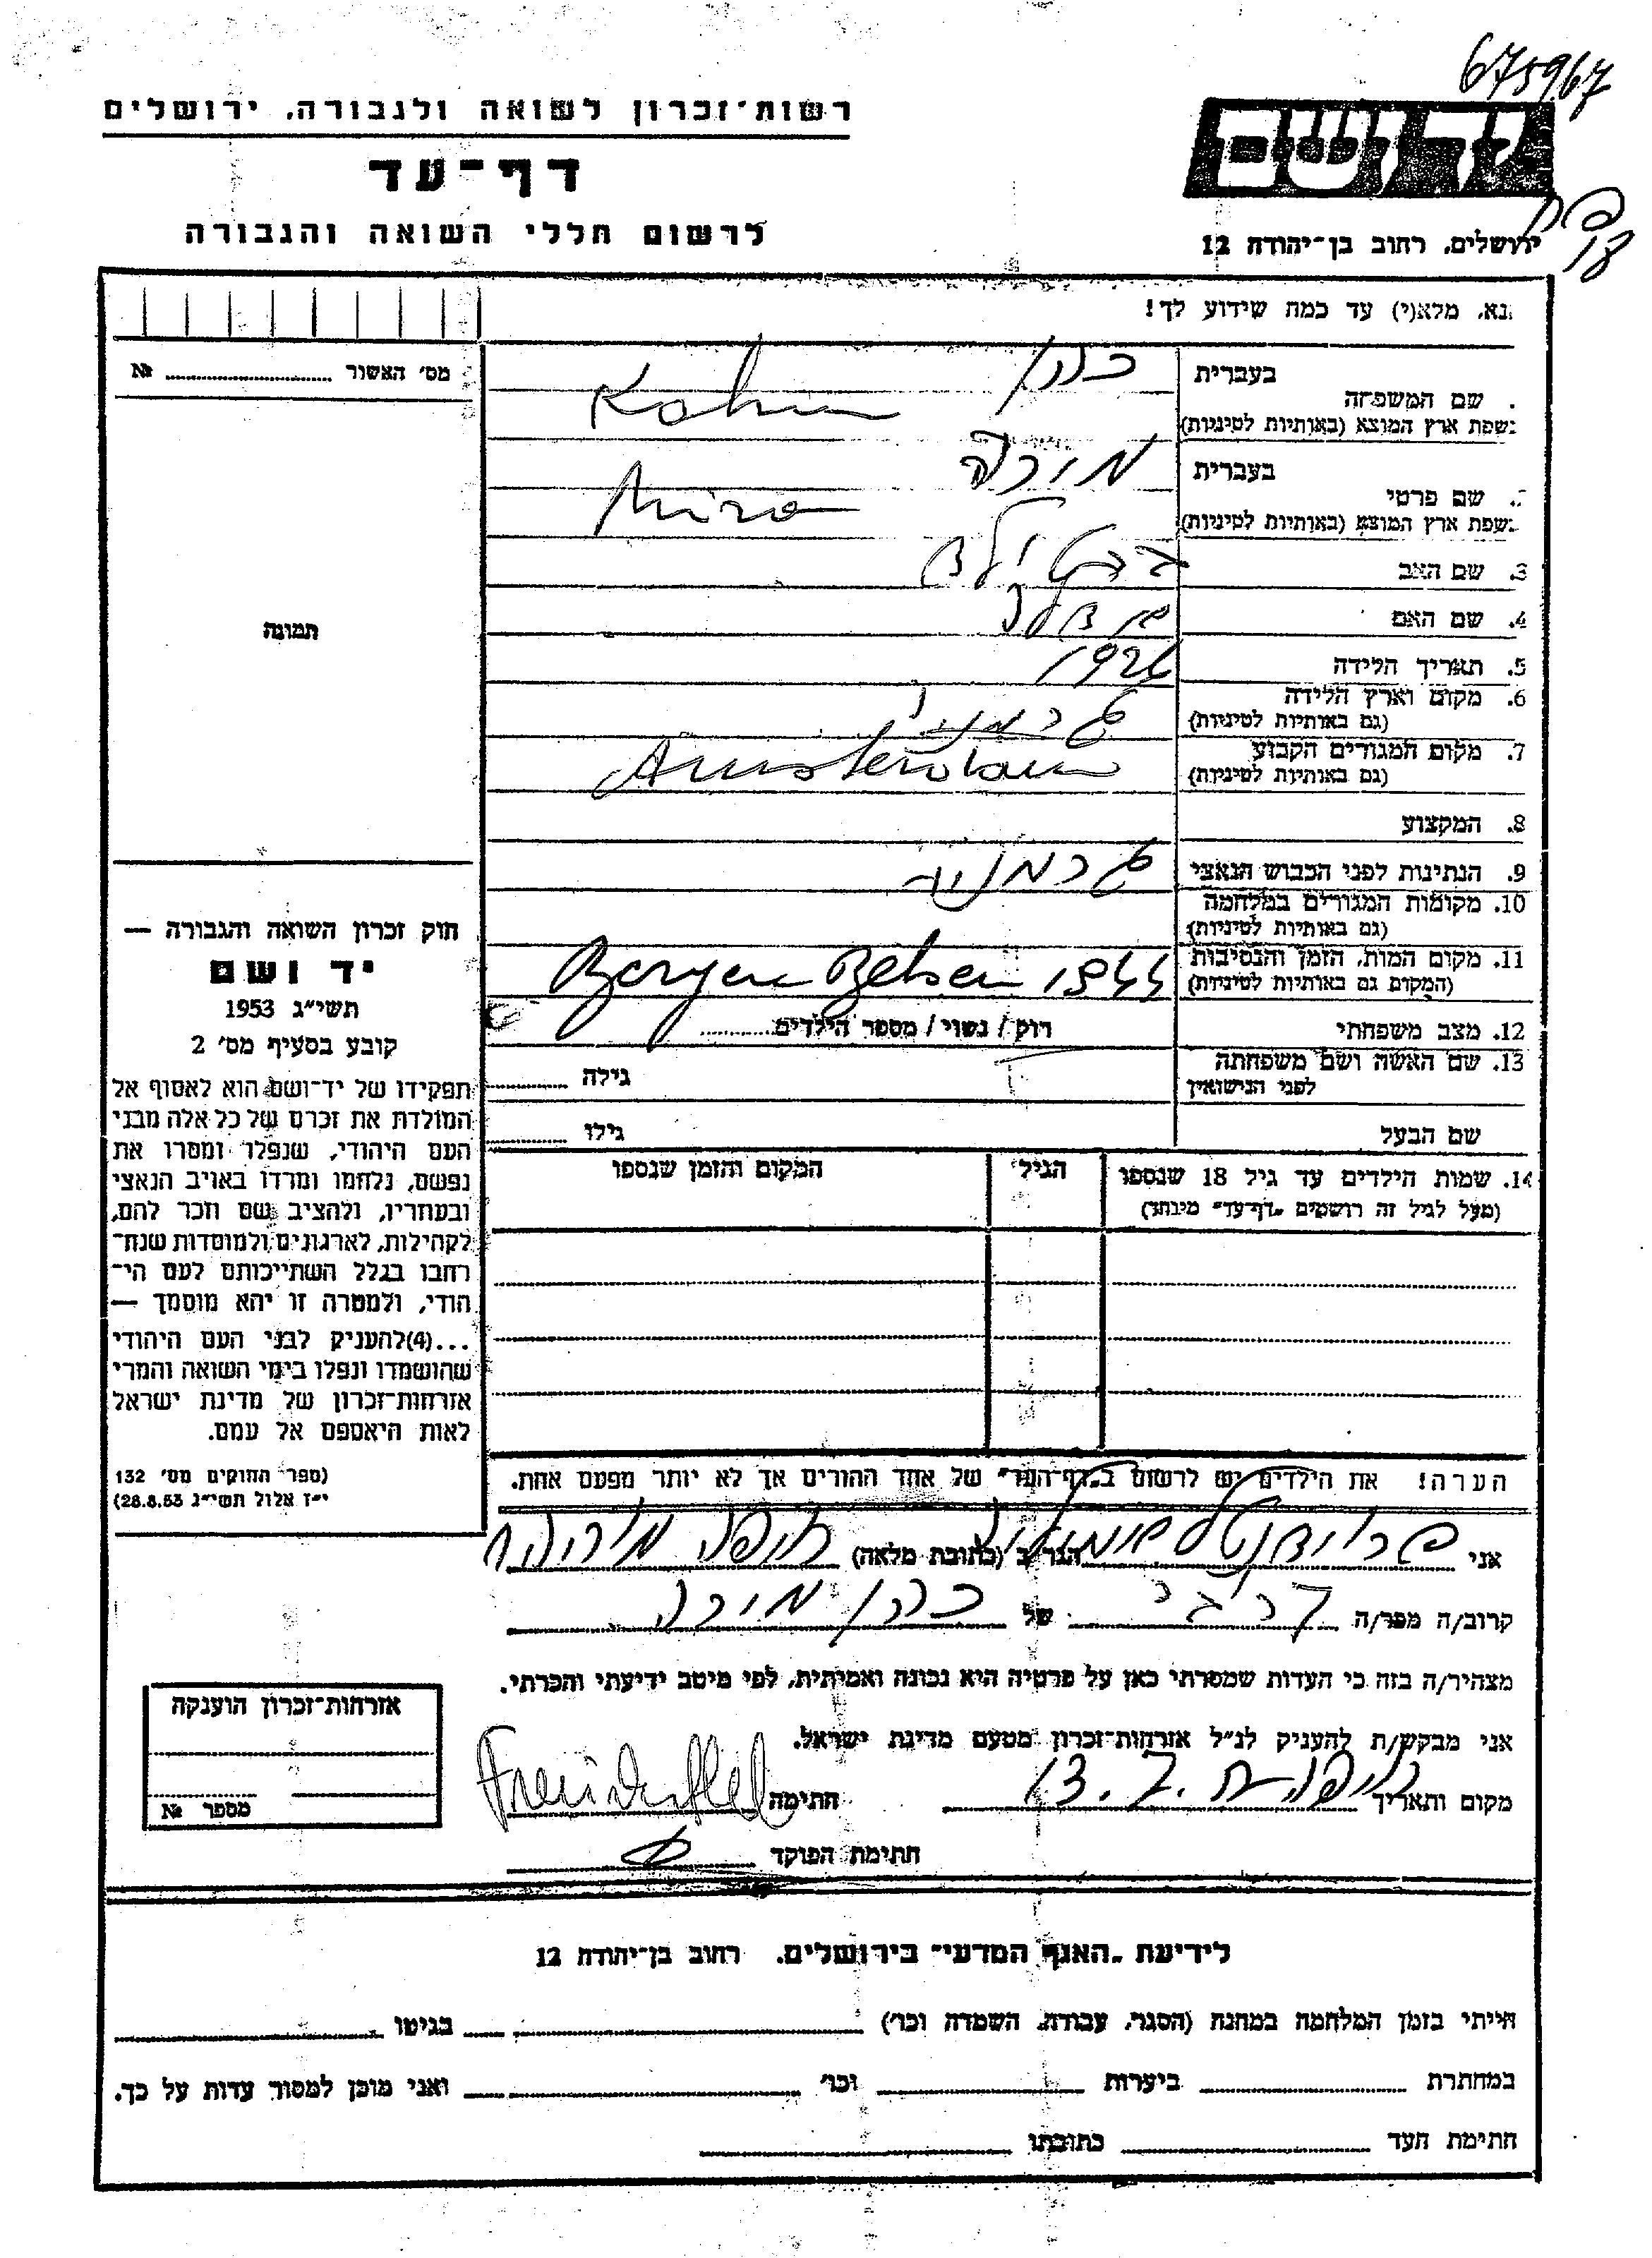 675967
רשות־זכרון לשואה ולגבורה, ירושלים
דף־עד
לרשום חללי השואה והגבורה
יד ושם
ירושלים, רחוב בן־יהודה 12
נא, מלא(י) עד כמה שידוע לך!
מס׳ האשור № 
שם המשפחה
בעברית כהן
בשפת ארץ המוצא (באותיות לטיניות) Kohn
שם פרטי
בעברית מירה
בשפת ארץ המוצא (באותיות לטיניות) Mira
3. שם האב
4. שם האם
תמונה
5. תאריך הלידה
6. מקום וארץ הלידה (גם באותיות לטיניות) גרמניה
7. מקום המגורים הקבוע (גם באותיות לטיניות) Amsterdam
8. המקצוע
9. הנתינות לפני הכבוש הנאצי גרמניה
10. מקומות המגורים במלחמה (גם באותיות לטיניות)
11. מקום המות, הזמן והנסיבות (המקום גם באותיות לטיניות) Bergen Belsen 1944
12. מצב משפחתי רוק / נשוי / מספר הילדים
13. שם האשה ושם משפחתה לפני הנישואין גילה
שם הבעל גילו
14. שמות הילדים עד גיל 18 שנספו
(מעל לגיל זה רושמים „דף־עד״ מיוחד)
הגיל
המקום והזמן שנספו
חוק זכרון השואה והגבורה —
יד ושם
תשי״ג 1953
קובע בסעיף מס׳ 2
תפקידו של יד־ושם הוא לאסוף אל
המולדת את זכרם של כל אלה מבני
העם היהודי, שנפלו ומסרו את
נפשם, נלחמו ומרדו באויב הנאצי
ובעוזריו, ולהציב שם וזכר להם,
לקהילות, לארגונים ולמוסדות שנח־
רחבו בגלל השתייכותם לעם הי־
הודי, ולמטרה זו יהא מוסמך —
...(4)להעניק לבני העם היהודי
שהושמדו ונפלו בימי השואה והמרי
אזרחות־זכרון של מדינת ישראל
לאות היאספם אל עמם.
(ספר החוקים מס׳ 132
י״ז אלול תשי״ג 28.8.53)
הערה! את הילדים יש לרשום ב„דף־העד״ של אחד ההורים אך לא יותר מפעם אחת.
אני פרוידנטל הגר ב (כתובת מלאה) חיפה
קרוב/ה מפר/ה של כהן מירה
מצהיר/ה בזה כי העדות שמסרתי כאן על פרטיה היא נכונה ואמיתית, לפי מיטב ידיעתי והכרתי.
אני מבקש/ת להעניק לנ״ל אזרחות־זכרון מטעם מדינת ישראל.
מקום ותאריך חיפה 13.7. חתימה
חתימת הפוקד
אזרחות־זכרון הוענקה
מספר №
לידיעת „האגף המדעי״ בירושלים, רחוב בן־יהודה 12
הייתי בזמן המלחמה במחנה (הסגר, עבודה, השמדה וכו׳) בגיטו
במחתרת ביערות וכו׳ ואני מוכן למסור עדות על כך.
חתימת העד כתובתו